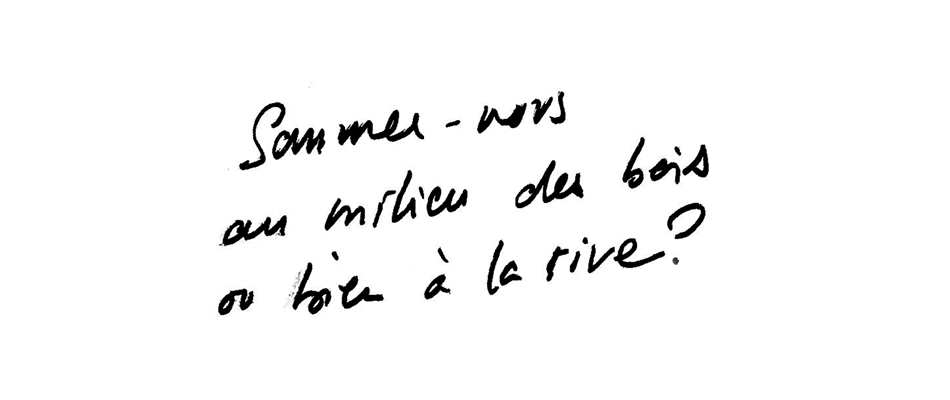 Sommes-nous
au milieu des bois
ou bien à la rive?